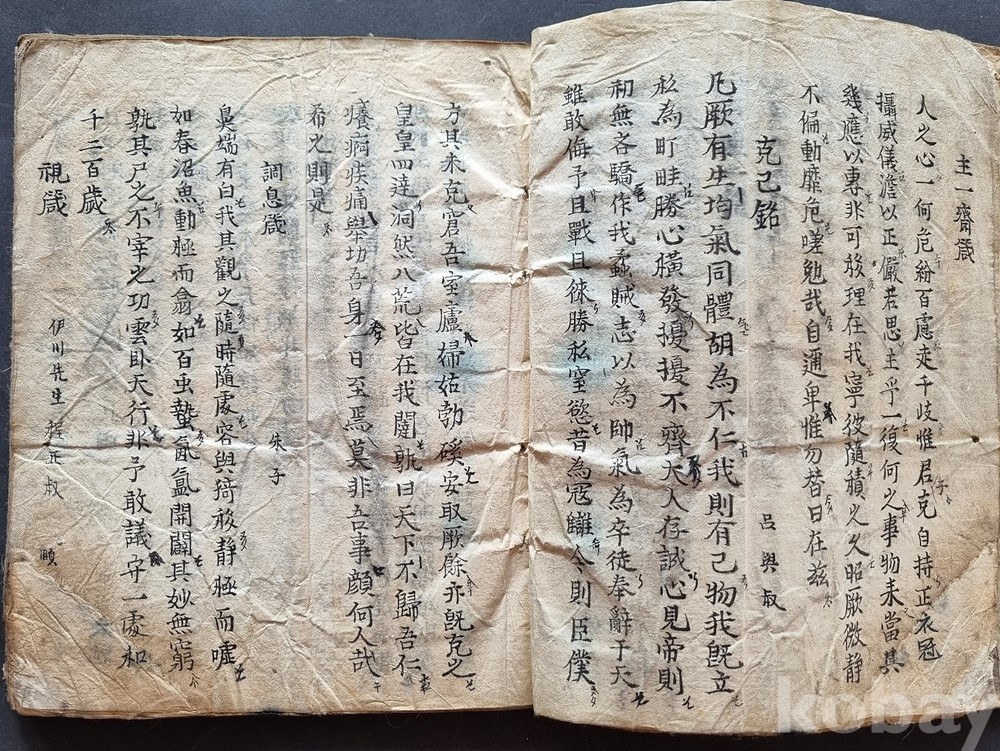 主一齋箴
人之心一何危紛百慮走千歧惟君克自持正衣冠
攝威儀澹以正儼若思主乎一復何之事物来當其
幾應以專非可移理在我寧彼隨積之久昭厥微静
不偏動靡危嗟勉哉自通卑惟勿替日在兹
克己銘 呂與叔
凡厥有生均氣同體胡為不仁我則有己物我旣立
私為町畦勝心橫發擾擾不齊大人存誠心見帝則
初無吝驕作我蟊賊志以為帥氣為卒徒奉辭于天
雖敢侮予且戰且徠勝私窒慾昔為冦讎今則臣僕
方其未克窘吾室廬婦姑勃磎安取厥餘亦旣克之
皇皇四達洞然八荒皆在我闥孰曰天下不歸吾仁
癢疴疾痛舉切吾身一日至焉莫非吾事顔何人哉
希之則是
調息箴 朱子
鼻端有白我其觀之隨時隨處容與猗移静極而噓
如春沼魚動極而翕如百虫蟄氤氳開闢其妙無窮
孰其尸之不宰之功雲卧天行非予敢議守一處和
千二百歲
視箴 伊川先生 程正叔 頤
kobay